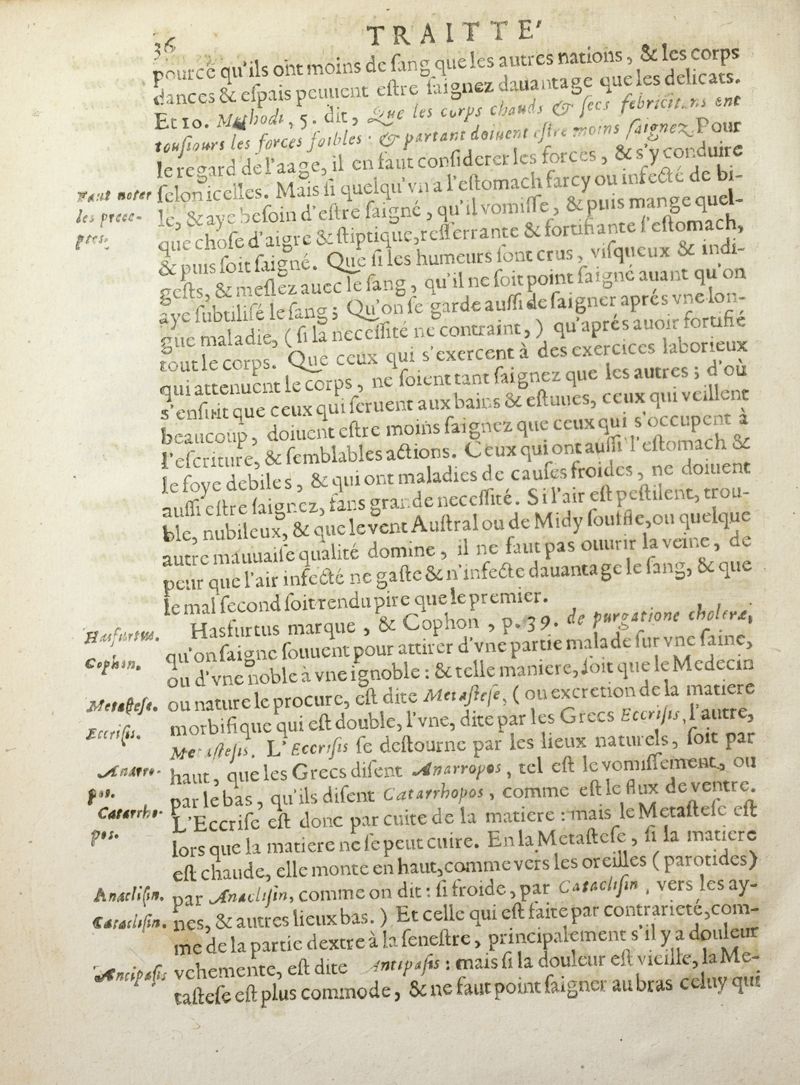 36
TRAITTE'
pource qu'ils ont moins de sang que les autres nations, & les corps
dances & espais peuuent estre saignez dauantage que les delicats.
Et 10. Methodi, 5. dit, Que les corps chauds & secs febricitans ont
tousiours les forces foibles : & partant doiuent estre moins saignez. Pour
le regard de l'aage, il en faut considerer les forces, & s'y conduire
Faut noter
selon icelles. Mais si quelqu'vn a l'estomach farcy ou infecté de bi-
les prece-
le, & aye besoin d'estre saigné, qu'il vomisse, & puis mange quel-
ptes.
que chose d'aigre & stiptique, resserrante & fortifiante l'estomach,
& puis soit saigné. Que si les humeurs sont crus, visqueux & indi-
gests, & meslez auec le sang, qu'il ne soit point saigné auant qu'on
aye subtilisé le sang ; Qu'on se garde aussi de saigner aprés vne lon-
gue maladie, (si la necessité ne contraint,) qu'aprés auoir fortifié
tout le corps. Que ceux qui s'exercent à des exercices laborieux
qui attenuent le corps, ne soient tant saignez que les autres ; d'où
s'ensuit que ceux qui seruent aux bains & estuues, ceux qui veillent
beaucoup, doiuent estre moins saignez que ceux qui s'occupent à
l'escriture, & semblables actions. Ceux qui ont aussi l'estomach &
le foye debiles, & qui ont maladies de causes froides, ne doiuent
aussi estre saignez, sans grande necessité. Si l'air est pestilent, trou-
ble, nubileux, & que le vent Austral ou de Midy souffle, ou quelque
autre mauuaise qualité domine, il ne faut pas ouurir la veine, de
peur que l'air infecté ne gaste & n'infecte dauantage le sang, & que
le mal second soit rendu pire que le premier.
Hasfurtus.
Hasfurtus marque, & Cophon, p. 39. de purgatione choleræ,
Cophon.
qu'on saigne souuent pour attirer d'vne partie malade sur vne saine,
ou d'vne noble à vne ignoble : & telle maniere, soit que le Medecin
Metastese.
ou nature le procure, est dite Metastese, (ou excretion de la matiere
Eccrisis.
morbifique qui est double, l'vne, dite par les Grecs Eccrisis, l'autre,
Metastesis. L'Eccrisis se destourne par les lieux naturels, soit par
Anarro-
haut, que les Grecs disent Anarropos, tel est le vomissement, ou
pos.
par le bas, qu'ils disent Catarrhopos, comme est le flux de ventre.
Catarrho-
L'Eccrise est donc par cuite de la matiere : mais le Metastese est
pos.
lors que la matiere ne se peut cuire. En la Metastese, si la matiere
est chaude, elle monte en haut, comme vers les oreilles (parotides)
Anaclisin.
par Anaclisin, comme on dit : si froide, par Cataclisin, vers les ay-
Cataclisin.
nes, & autres lieux bas.) Et celle qui est faite par contrarieté, com-
me de la partie dextre à la senestre, principalement s'il y a douleur
Ancipasis
vehemente, est dite Antipasis : mais si la douleur est vieille, la Me-
tastese est plus commode, & ne faut point saigner au bras celuy qui